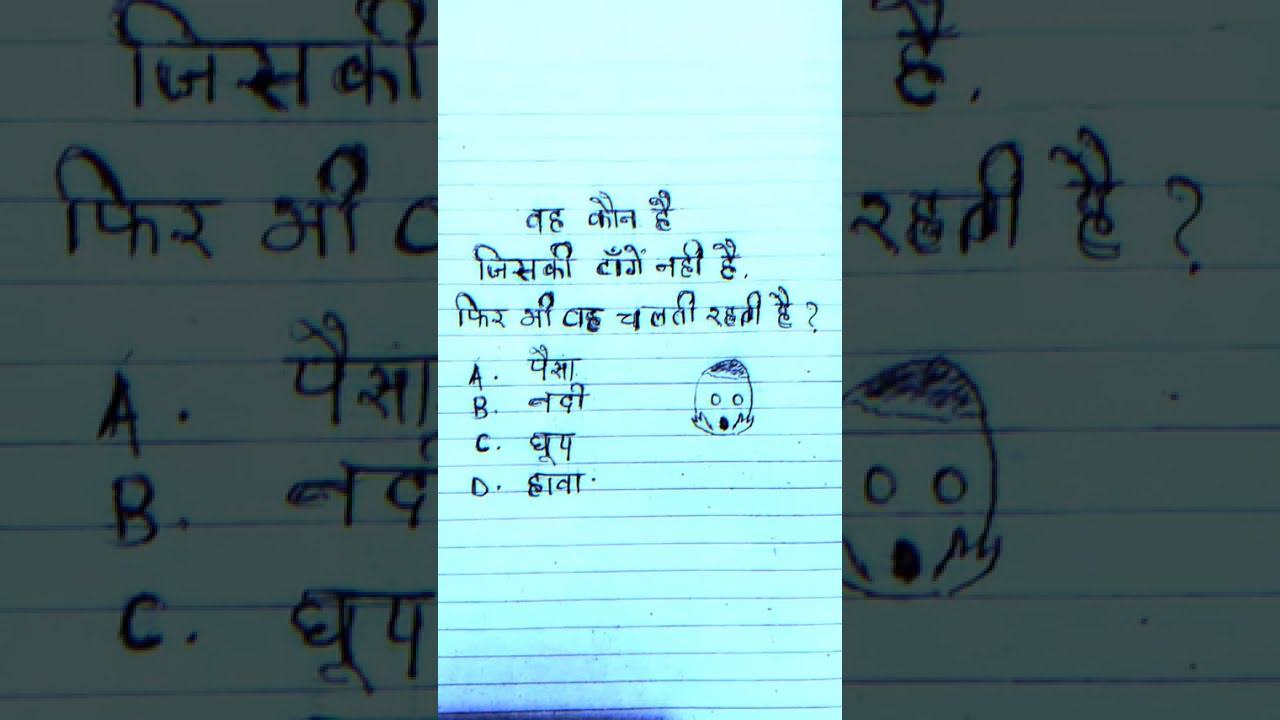 वह कौन है
जिसकी टाँगें नही है.
फिर भी वह चलती रहती है ?
A. पैसा
B. नदी
C. धूप
D. हावा.